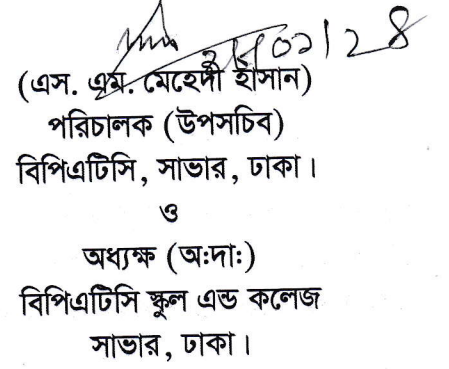 (এস. এম. মেহেদী হাসান)
পরিচালক (উপসচিব)
বিপিএটিসি, সাভার, ঢাকা।
ও
অধ্যক্ষ (অ:দা:)
বিপিএটিসি স্কুল এন্ড কলেজ
সাভার, ঢাকা।